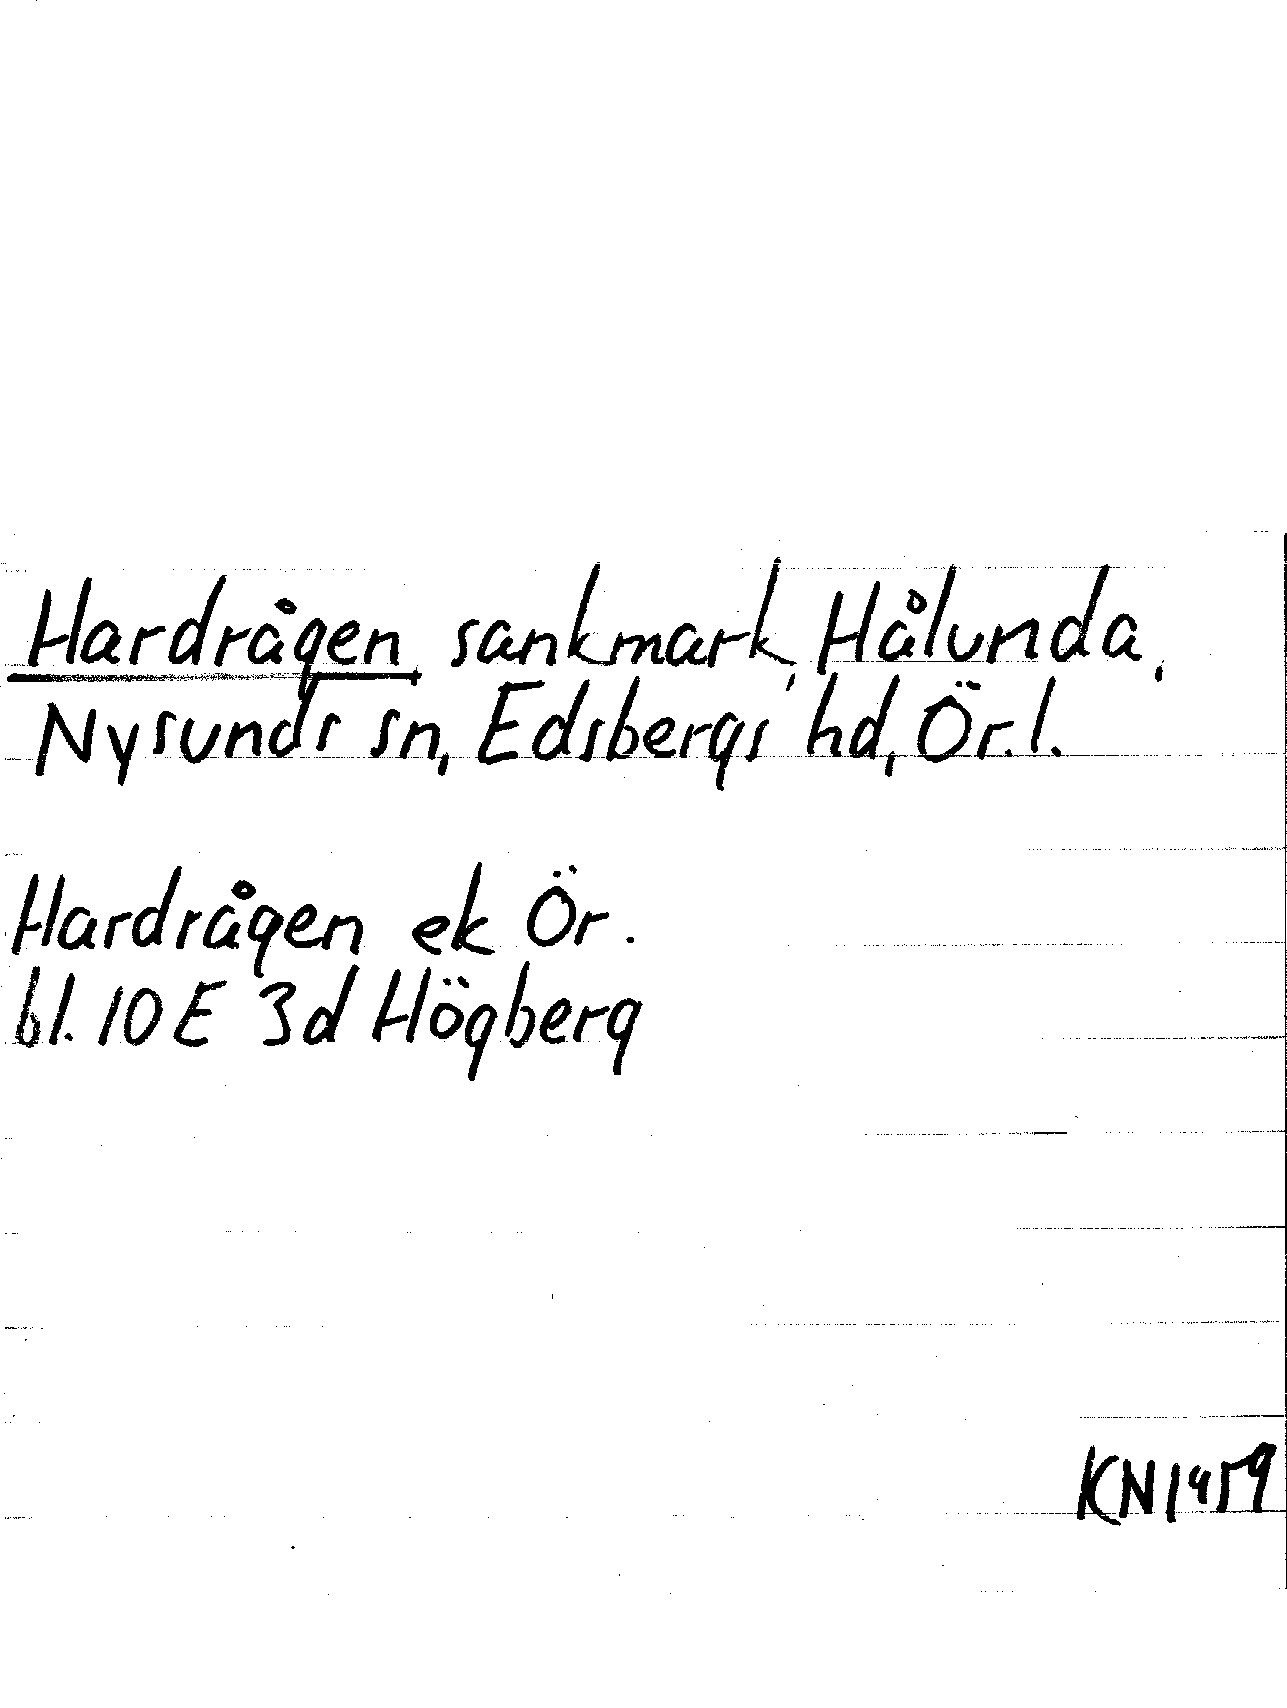 Hardrågen, sankmark, Hålunda,
Nysunds sn, Edsbergs hd, Ör. l.
Hardrågen ek Ör.
bl. 10 E 3d Högberg
KN 1959